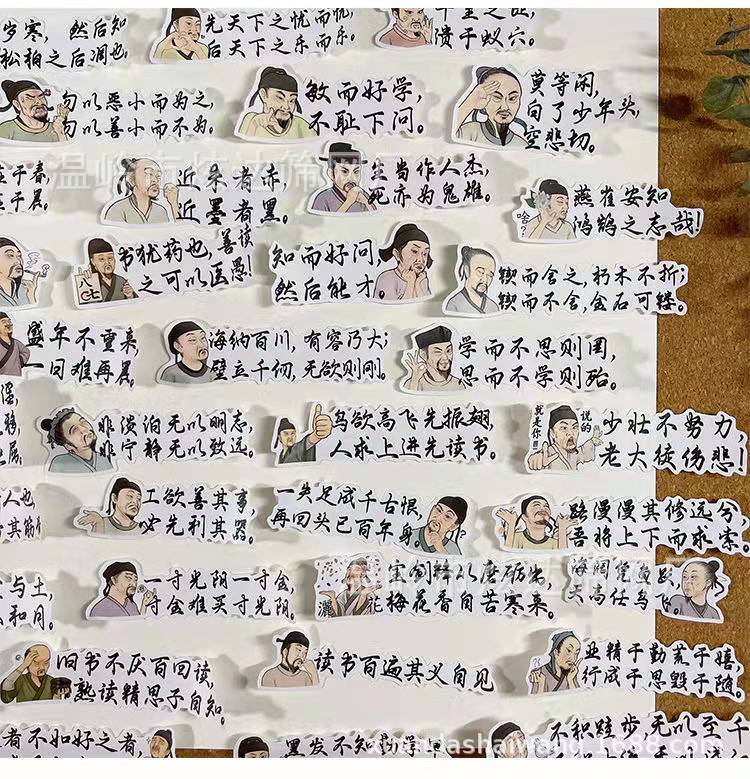 岁寒，然后知
松柏之后凋也，
先天下之忧而忧，
后天下之乐而乐。
溃于蚁穴。
勿以恶小而为之，
勿以善小而不为。
敏而好学，
不耻下问。
莫等闲，
白了少年头，
空悲切。
近朱者赤，
近墨者黑。
生当作人杰，
死亦为鬼雄。
啥？
燕雀安知
鸿鹄之志哉！
八
七
书犹药也，善读
之可以医愚！
知而好问，
然后能才。
锲而舍之，朽木不折；
锲而不舍，金石可镂。
盛年不重来，
一日难再晨。
海纳百川，有容乃大；
壁立千仞，无欲则刚。
学而不思则罔，
思而不学则殆。
非淡泊无以明志，
非宁静无以致远。
鸟欲高飞先振翅，
人求上进先读书。
说的
就是你！！
少壮不努力，
老大徒伤悲！
工欲善其事，
必先利其器。
一失足成千古恨，
再回头已百年身
路漫漫其修远兮，
吾将上下而求索。
与土，
和月。
一寸光阴一寸金，
寸金难买寸光阴。
洒
花
宝剑锋从磨砺出，
梅花香自苦寒来。
海阔凭鱼跃
天高任鸟飞
旧书不厌百回读，
熟读精思子自知。
读书百遍其义自见
业精于勤荒于嬉，
行成于思毁于随。
者不如好之者，
黑发不知勤学早
不积跬步，无以至千